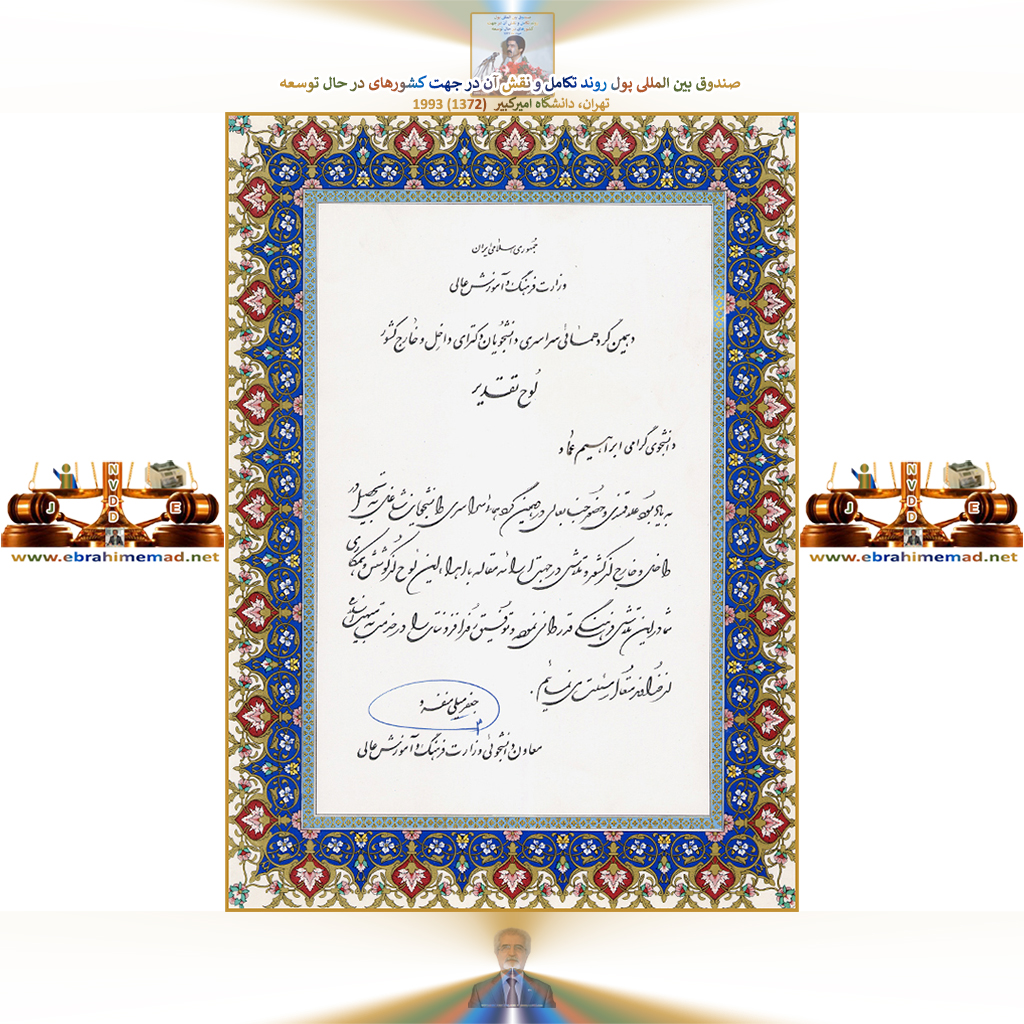 صندوق بین المللی پول روند تکامل و نقش آن در جهت کشورهای در حال توسعه
تهران، دانشگاه امیرکبیر (1372) 1993
جمهوری اسلامی ایران
وزارت فرهنگ و آموزش عالی
دهمین گردهمائی سراسری دانشجویان دکترای داخل و خارج کشور
لوح تقدیر
دانشجوی گرامی ابراهیم عماد
به یاد بود و حضور جنابعالی در دهمین گردهمائی سراسری دانشجویان شاغل به تحصیل در
داخل و خارج از کشور و تلاش در جهت ارائه مقاله، با اهداء این لوح از کوشش و همکاری
شما در این تلاش فرهنگی قدردانی نموده و توفیق روزافزونتان را در خدمت به
از خداوند متعال مسئلت می نمائیم.
جعفر میلی منفرد
معاون دانشجوئی وزارت فرهنگ و آموزش عالی
NVDD
J E
www.ebrahimemad.net
NVDD
J E
www.ebrahimemad.net